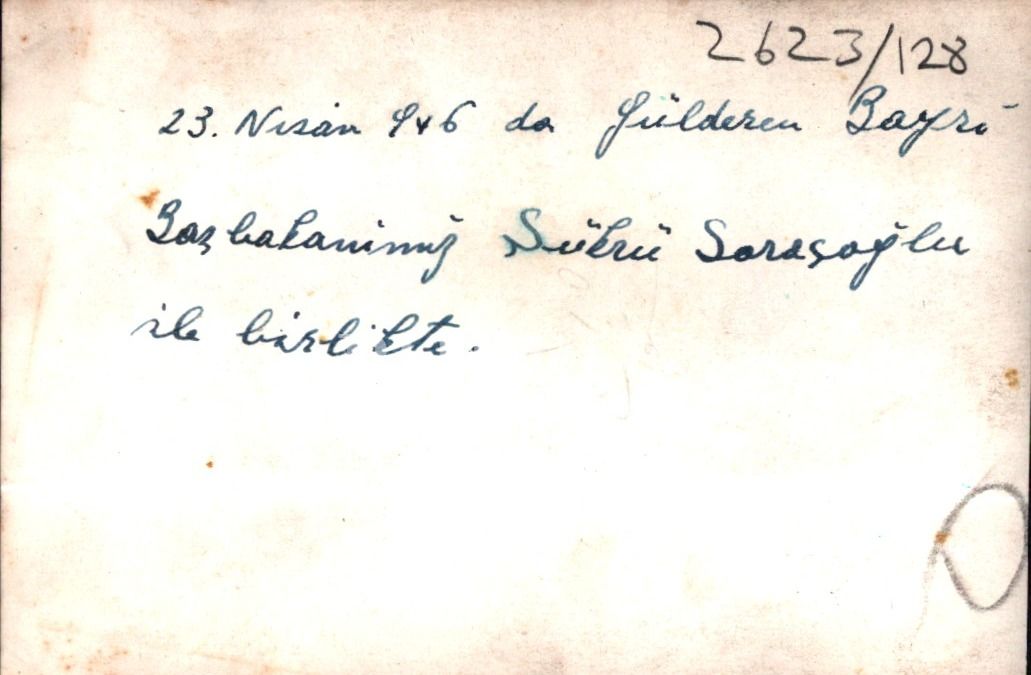 2623/128
23. Nisan 946 da Gülderen Bayrı
Başbakanimiz Şükrü Saraçoğlu
ile birlikte.